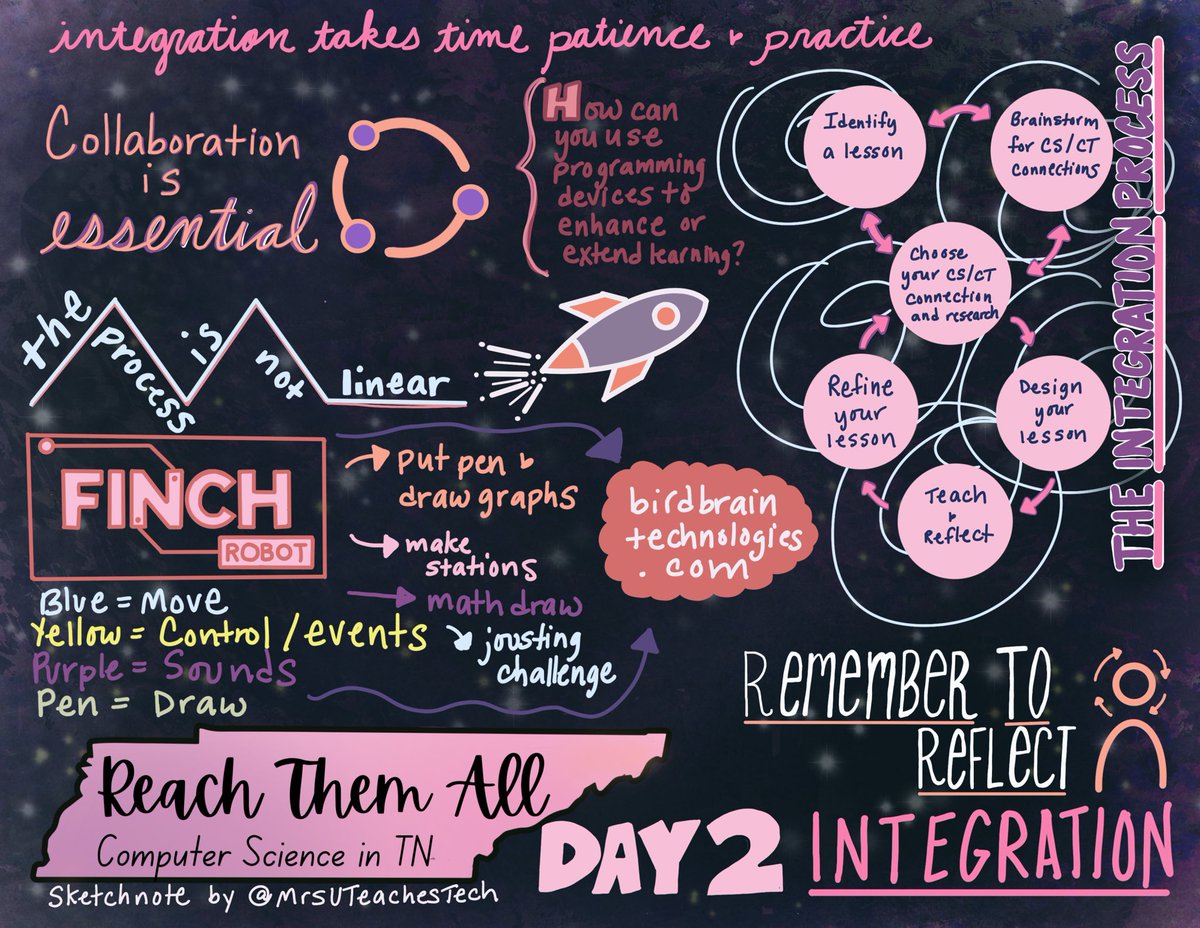 integration takes time patience & practice
Collaboration
is
essential
How can
you use
programming
devices to
enhance or
extend learning?
the process is not linear
FINCH
ROBOT
Blue = Move
Yellow = Control/events
Purple = Sounds
Pen = Draw
put pen &
draw graphs
make
stations
math draw
jousting
challenge
birdbrain
technologies
.com
THE INTEGRATION PROCESS
Identify
a lesson
Brainstorm
for CS/CT
connections
Choose
your CS/CT
connection
and research
Design
your
lesson
Teach
&
Reflect
Refine
your
lesson
REMEMBER TO
REFLECT
Reach Them All
Computer Science in TN
Sketchnote by @MrsUTeachesTech
DAY 2
INTEGRATION